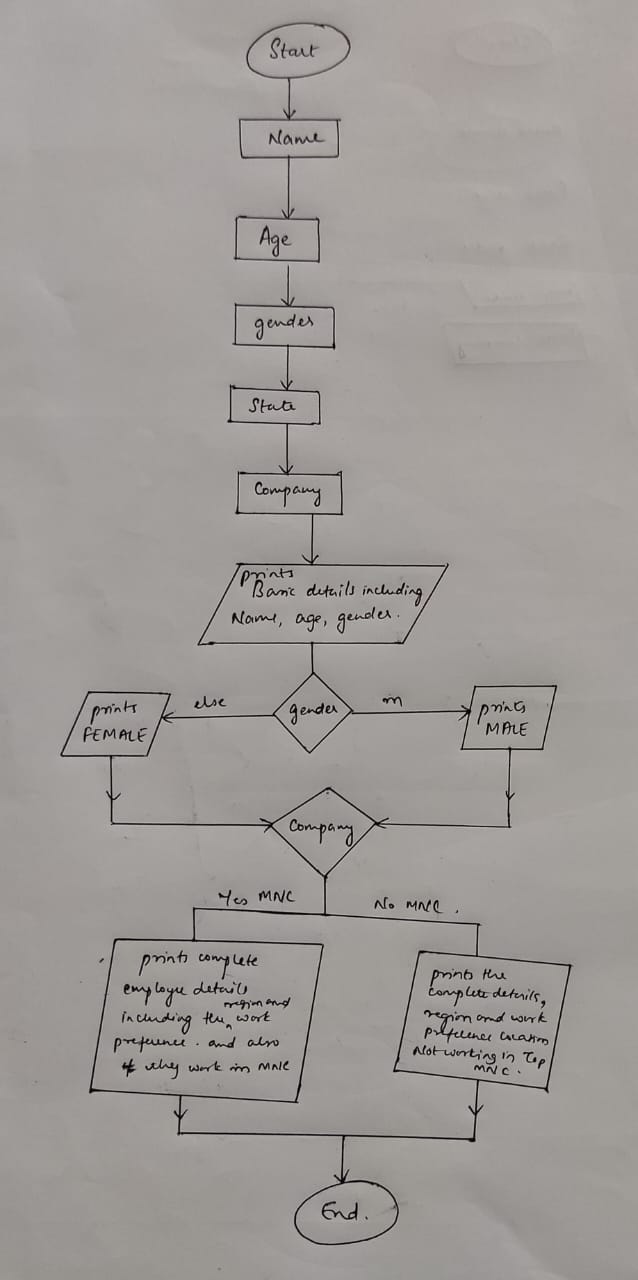 Start
Name
Age
gender
State
Company
prints
Basic details including
Name, age, gender.
else
gender
m
prints
FEMALE
prints
MALE
Company
Yes MNC
No MNC.
prints complete
employee details
region and
including the work
preference. and also
if they work in MNC
prints the
complete details,
region and work
preference location
Not working in Top
MNC.
End.